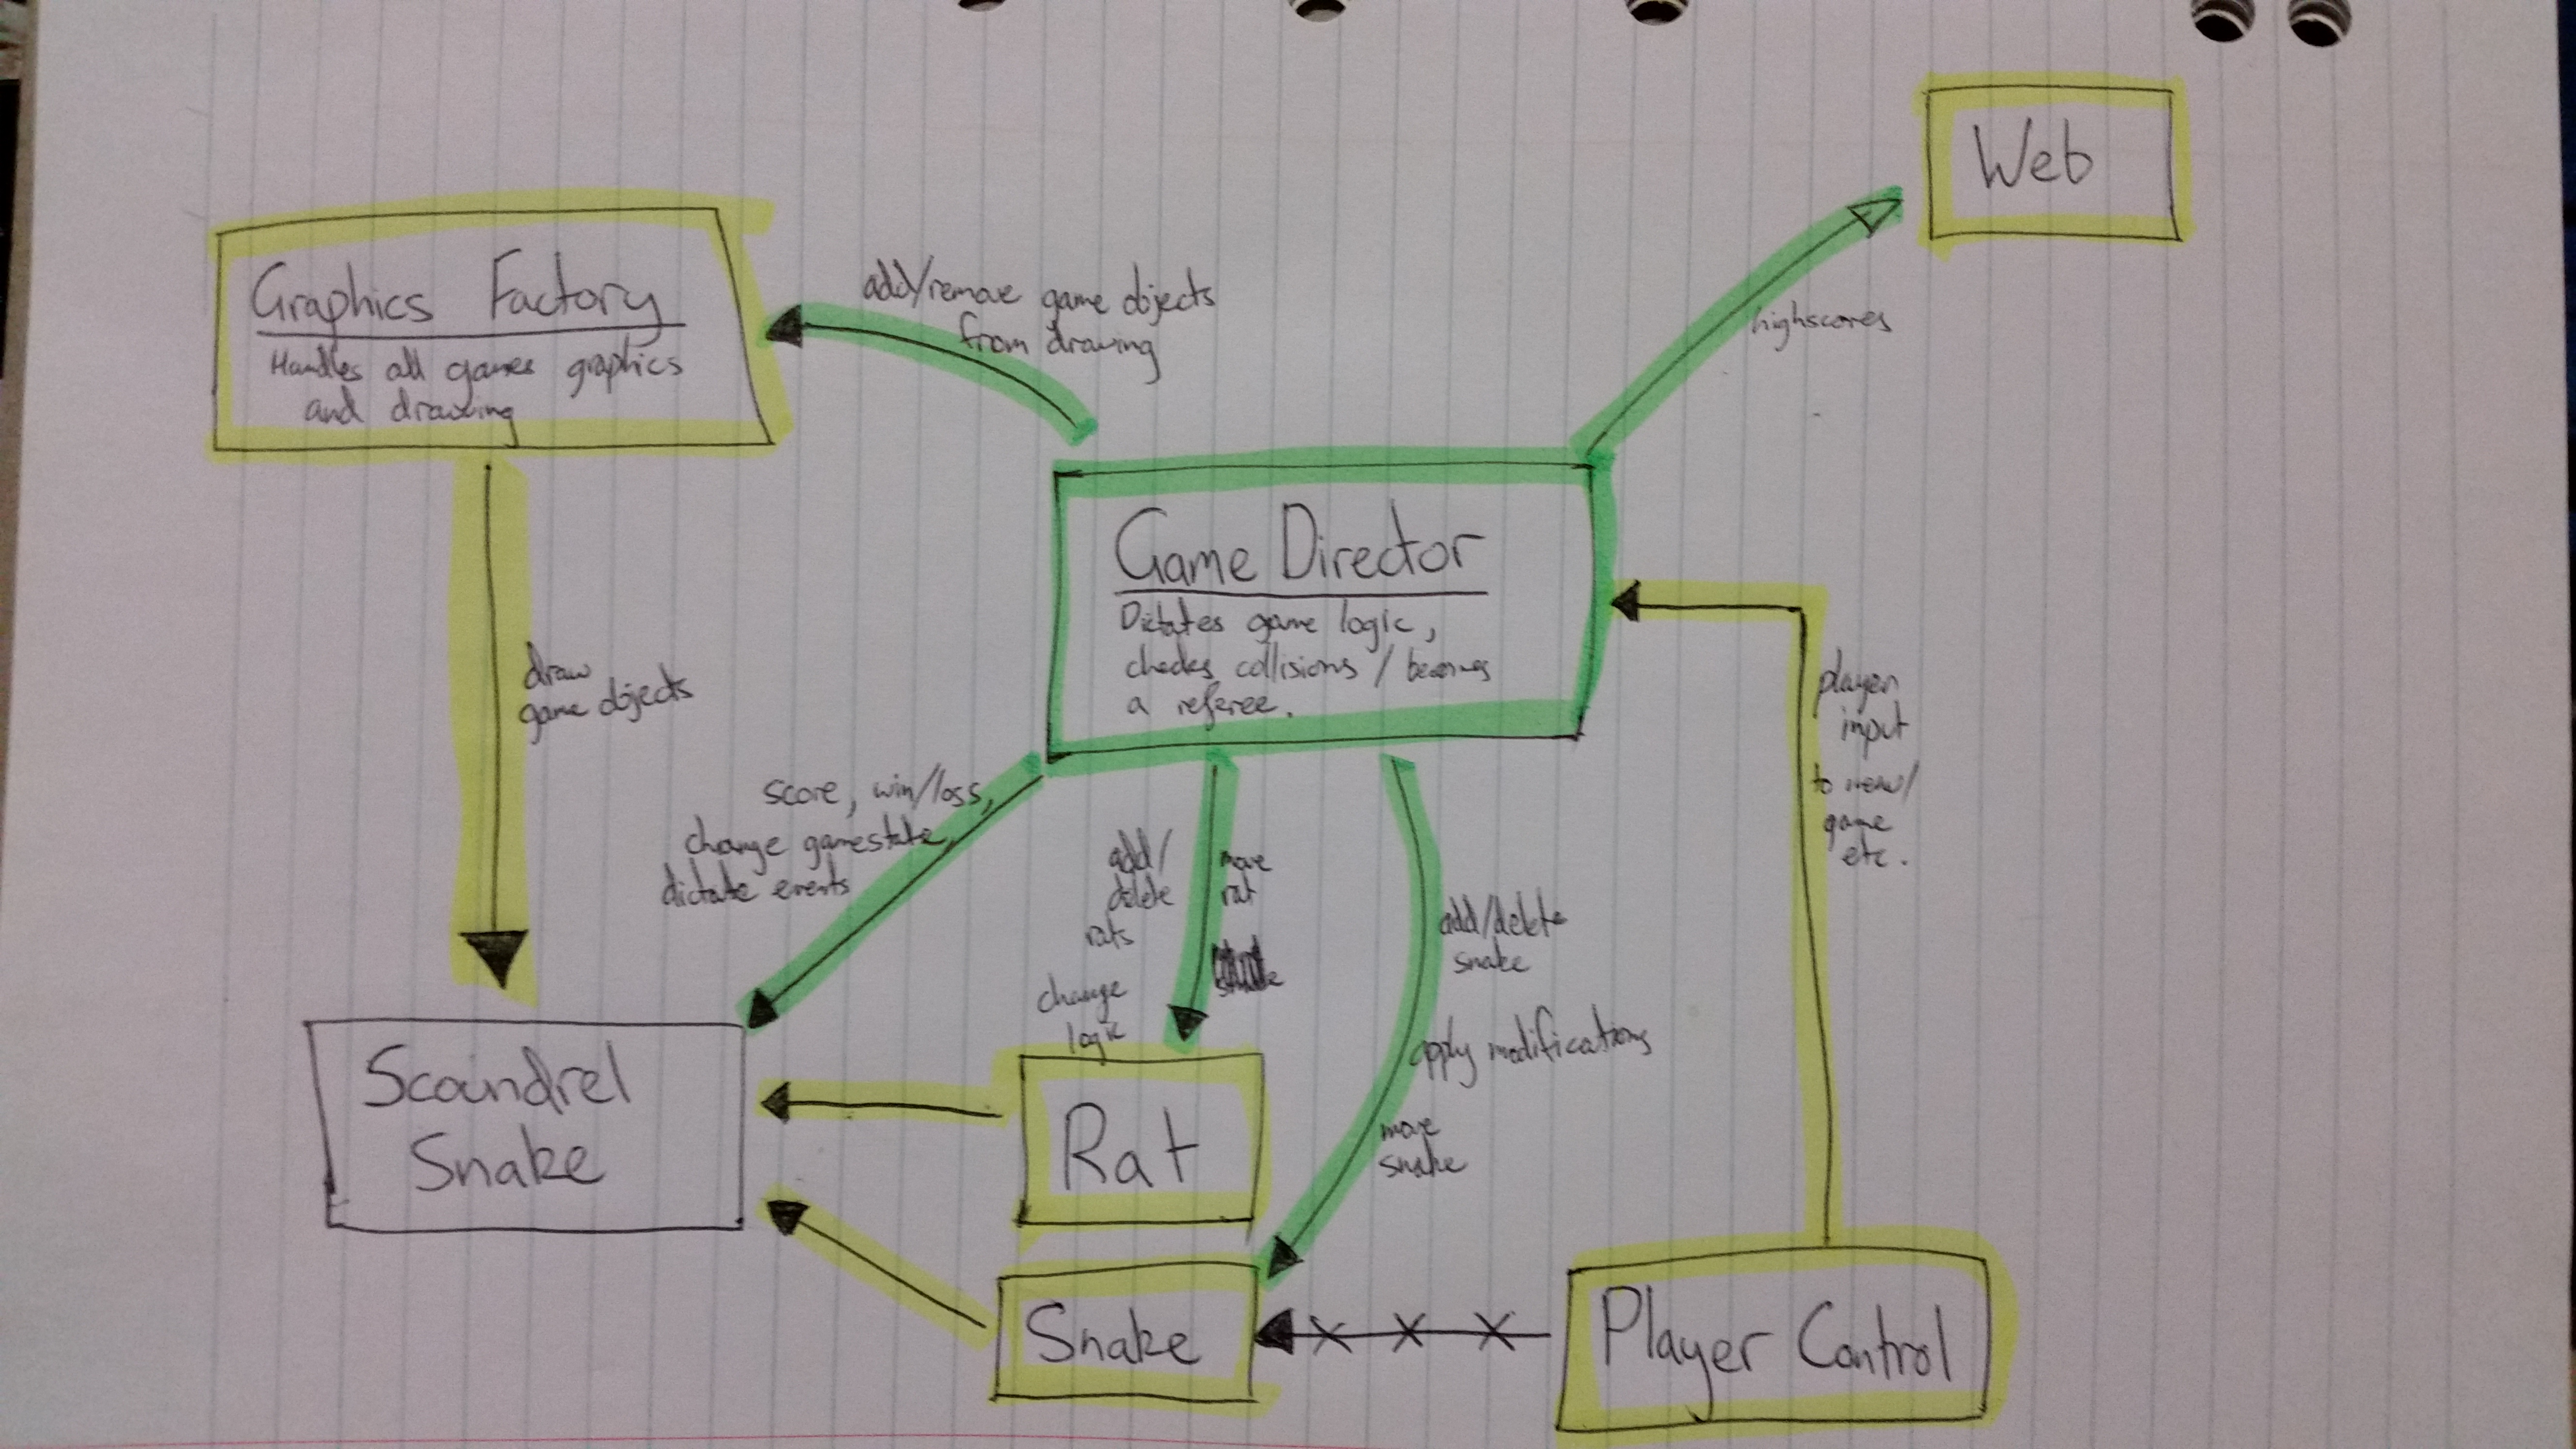 Web
Graphics Factory
Handles all games graphics
and drawing
add/remove game objects
from drawing
highscores
Game Director
Dictates game logic,
checks collisions / becomes
a referee.
draw
game objects
player
input
to menu/
game
etc.
score, win/loss,
change gamestate,
dictate events
add/
delete
rats
change
logic
move
rat
add/delete
snake
apply modifications
move
snake
Scoundrel
Snake
Rat
Snake
Player Control